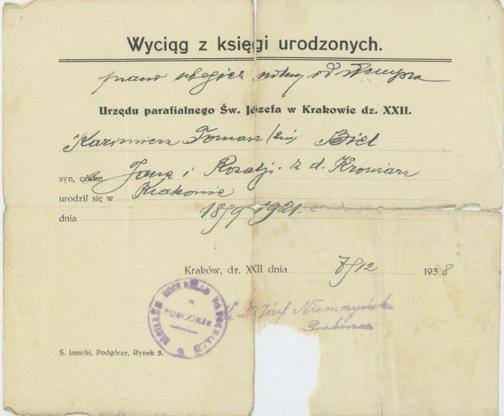 Wyciąg z księgi urodzonych.
prawo ubogich wolny od stempla
Urzędu parafialnego Św. Józefa w Krakowie dz. XXII.
Kazimierz Tomasz Biel
syn, córka Jana i Rozalji z d. Krowiarz
urodził się w Krakowie
dnia 18/9 1921
Kraków, dz. XXII dnia 7/12 1938
X. Dr Józef Niemczyński
Proboszcz
S. Janicki, Podgórze, Rynek 3.